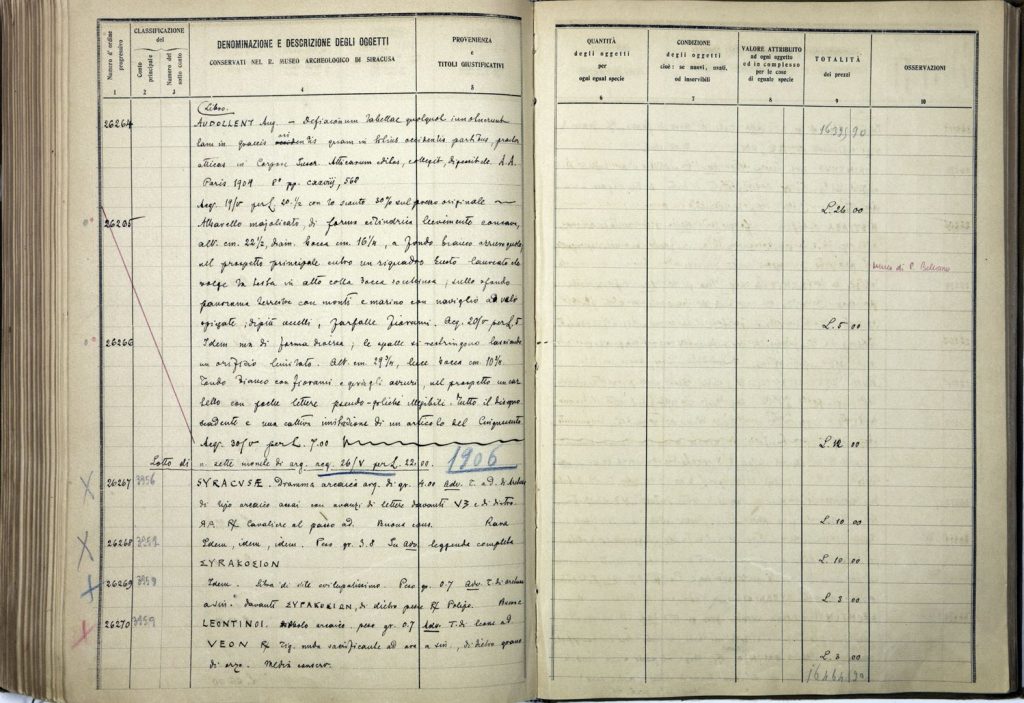 Numero d'ordine progressivo
CLASSIFICAZIONE del
Conto principale
Numero del sotto conto
DENOMINAZIONE E DESCRIZIONE DEGLI OGGETTI
CONSERVATI NEL R. MUSEO ARCHEOLOGICO DI SIRACUSA
PROVENIENZA
e
TITOLI GIUSTIFICATIVI
1 2 3 4 5
Libro.
26264 AUDOLLENT Aug — Defixionum Tabellae quotquot innotuerunt
tam in graecis orientis quam in totius occidentis partibus, praeter
atticas in Corpore Inscr. Atticarum editas, collegit, A. A.
Paris 1904 8° pp. cxxviij, 568
Acq. 19/V per L. con lo sconto 20% sul prezzo originale
26265 Alberello majolicato, di forma cilindrica lievemente concava,
alt. cm. 22½, diam. bocca cm. a fondo bianco
nel prospetto principale entro un riquadro busto laureato che
volge la testa in alto colla bocca ; sullo sfondo
panorama terrestre con monti e marino con naviglio a vele
spiegate; di più uccelli, farfalle Acq. 20/V per L. 5
26266 Idem ma di forma diversa; le spalle si restringono lasciando
un orifizio limitato. Alt. cm. 29¾, luce bocca cm.
Fondo bianco con fiorami e azzurri, nel prospetto un car
tello con poche lettere pseudo-gotiche illegibili. Tutto il disegno
scadente e una cattiva imitazione di un articolo del Cinquecento
Acq. 30/V per L. 7.00
Lotto di n. sette monete di arg. acq. 26/V per L. 22.00. 1906
26267 3956 SYRACUSÆ. Dramma arcaica arg. di gr. 4.00 Adv. T. a d.
di tipo arcaico assai con avanzi di lettere davanti e di dietro
Cavaliere al passo a d. Buona cons. Rara
26268 Idem, idem, idem. Peso gr. 3.8 Su Adv. leggenda completa
ΣΥRΑΚΟSΙΟΝ
26269 3958 Idem. di stile sviluppatissimo. Peso gr. 0.7 Adv. T. di
a sin. Davanti , di dietro Polipo. Buona
26270 3959 LEONTINOI. arcaico peso gr. 0.7 Adv. T. di leone a d.
Fig. nuda sacrificante ad ara a sin., di dietro grano
di orzo. Media conserv.
QUANTITÀ
degli oggetti
per
ogni egual specie
CONDIZIONE
degli oggetti
cioè: se nuovi, usati,
od inservibili
VALORE ATTRIBUITO
ad ogni oggetto
ed in complesso
per le cose
di eguale specie
TOTALITÀ
dei prezzi
OSSERVAZIONI
6 7 8 9 10
16395 90
L. 26 00
Museo di P. Bellomo
L. 5 00
L. 12 00
L. 10 00
L. 10 00
L. 3 00
L. 3 00
16464 90